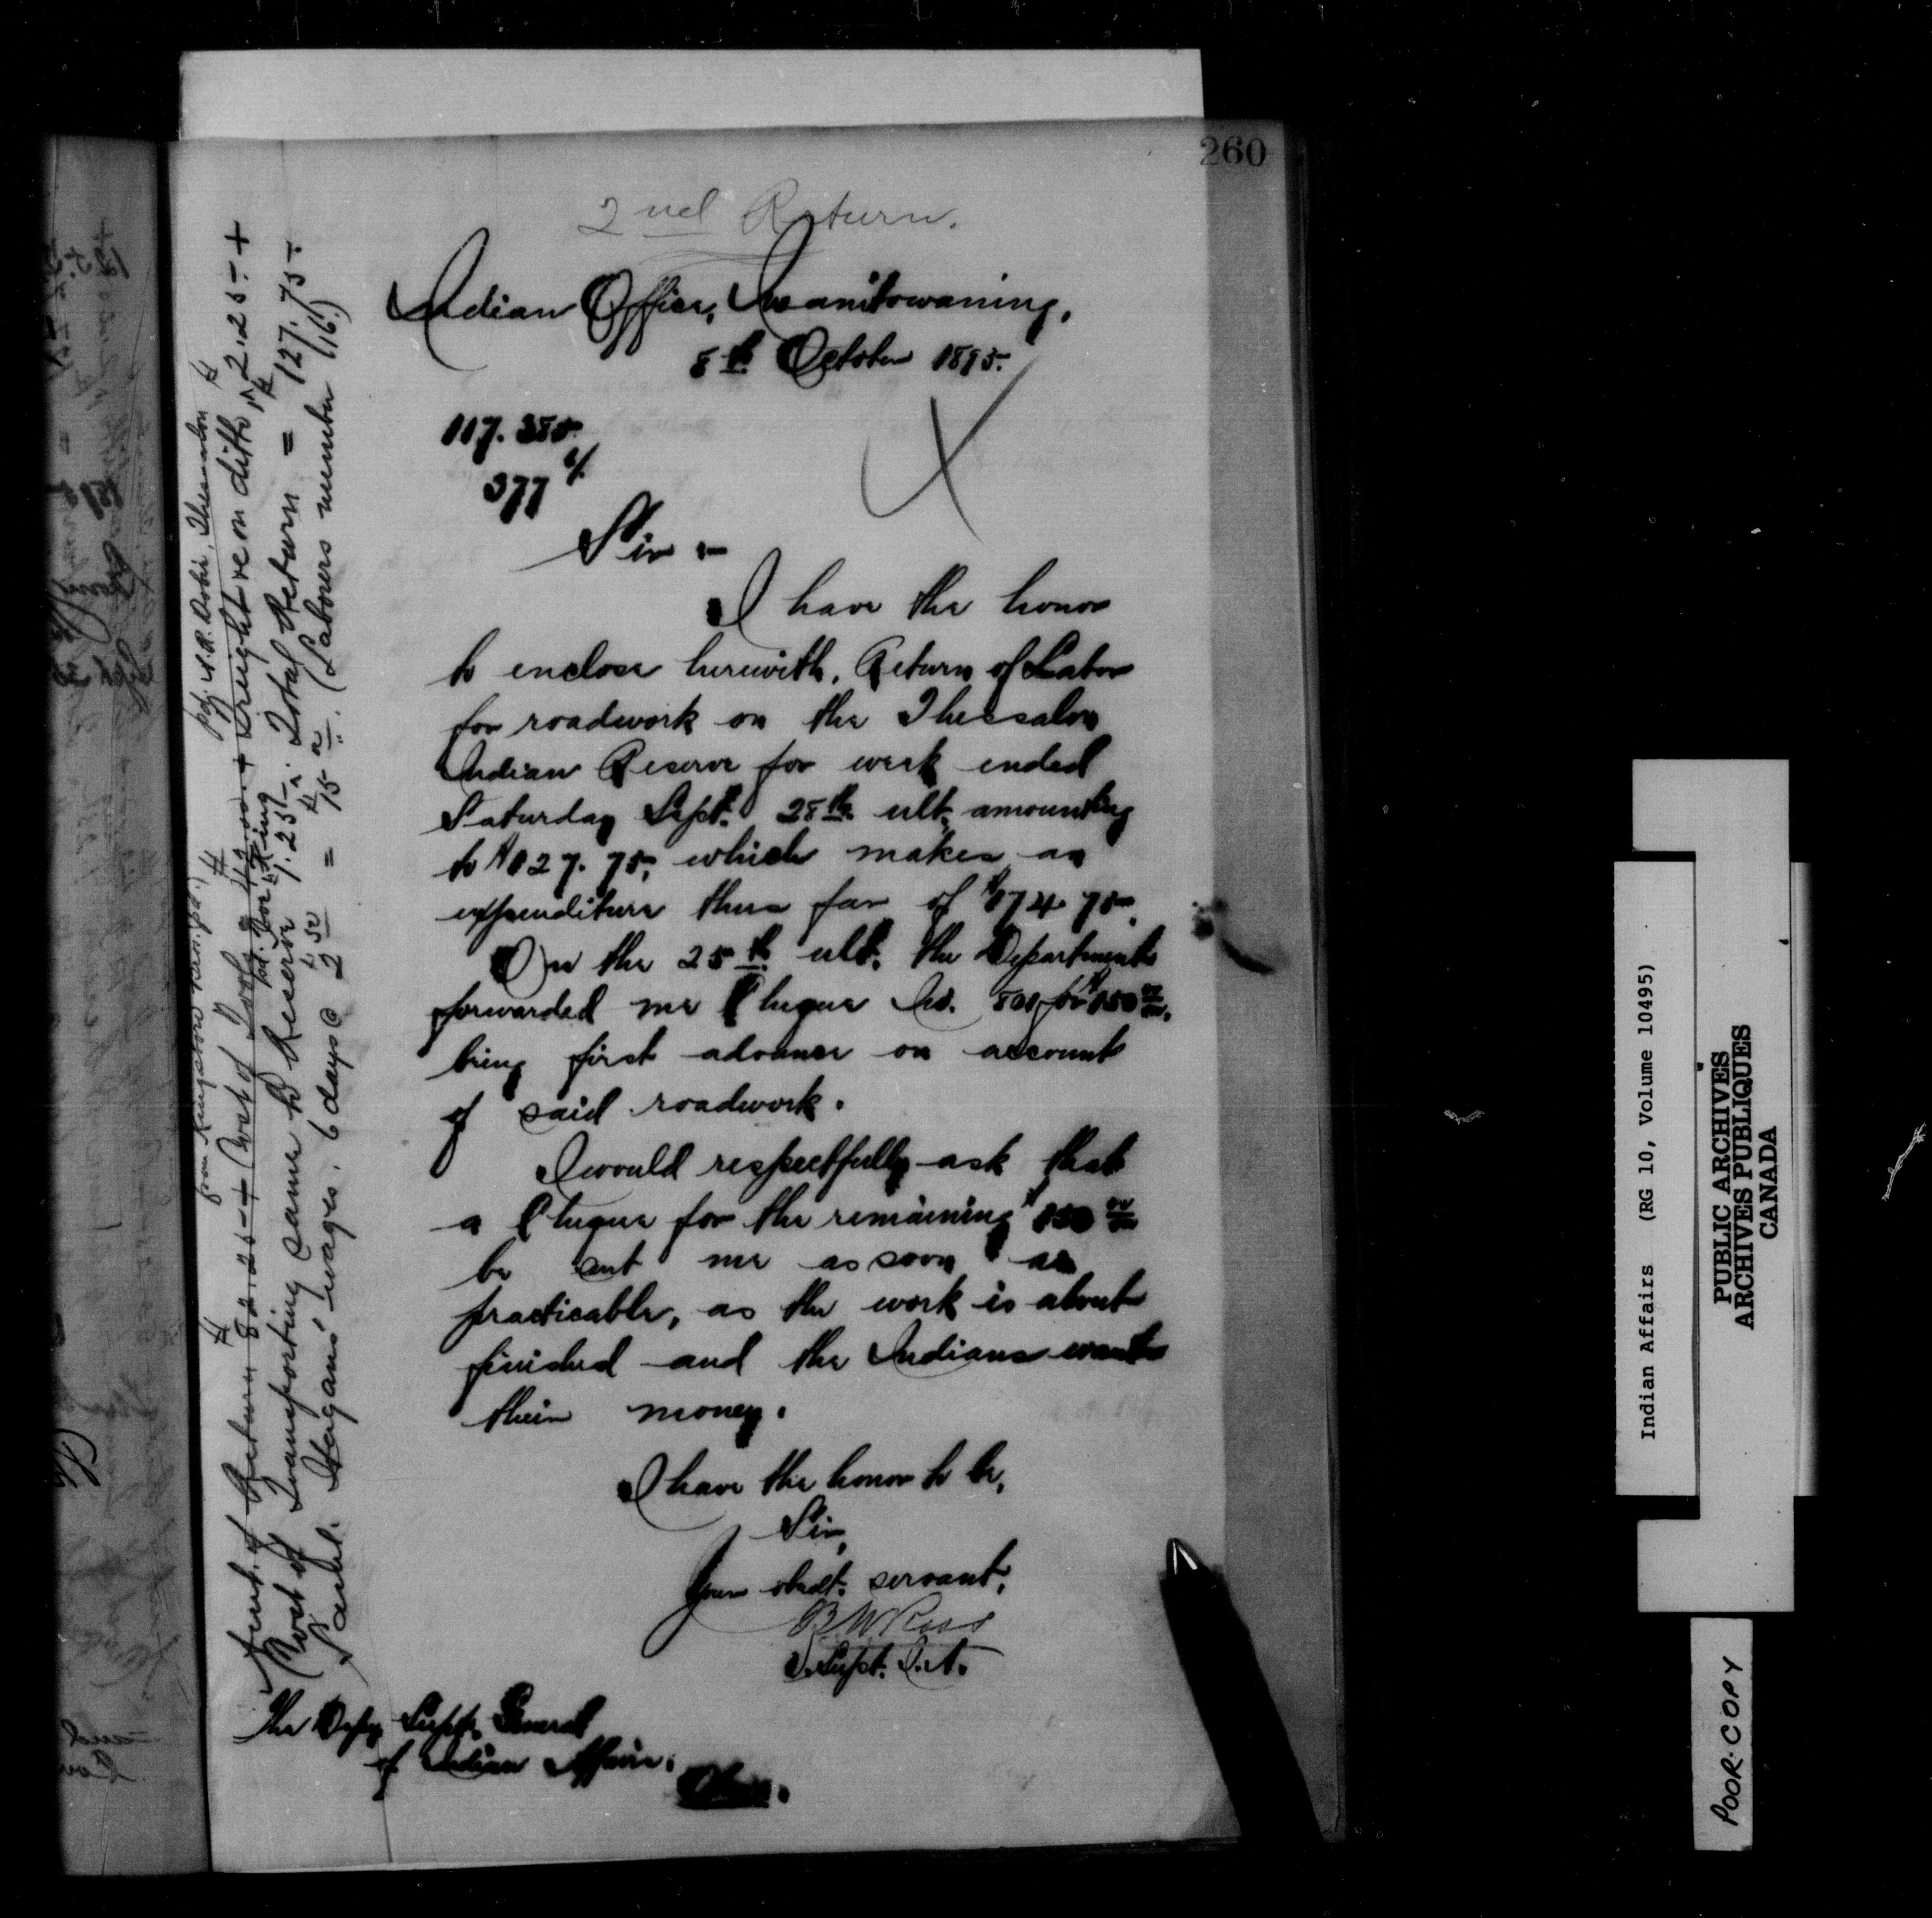 260
2nd Return.
Indian Office, Manitowaning,
8th October 1895.
117.385
377
Sir :—
I have the honor
to enclose herewith, Return of Labor
for roadwork on the Thessalon
Indian Reserve for week ended
Saturday Sept. 28th ult. amounting
to $127.75, which makes an
expenditure thus far of $174.75.
On the 25th ult. the Department
forwarded me Cheque No. 801 for $150 00/100,
being first advance on account
of said roadwork.
I would respectfully ask that
a Cheque for the remaining $150 00/100
be sent me as soon as
practicable, as the work is about
finished and the Indians want
their money.
I have the honor to be,
Sir,
Your obedt. servant,
B W Ross
I. Supt. I.A.
The Depy. Supt. General
of Indian Affairs.
from Kingston Pen. pd.) pd. N.R. Dobie, Thessalon
Amt. of Return $82.25 + Cost of Tools $13.00 + Freight on ditto, $2.25 +
pd. for King
Cost of Transporting same to Reserve 1.25; Total Return = $127.75.
Saml. Hagans' wages. 6 days @ $2.50 = $15.00. (Labourers number (16.)
Indian Affairs (RG 10, Volume 10495)
PUBLIC ARCHIVES
ARCHIVES PUBLIQUES
CANADA
POOR COPY